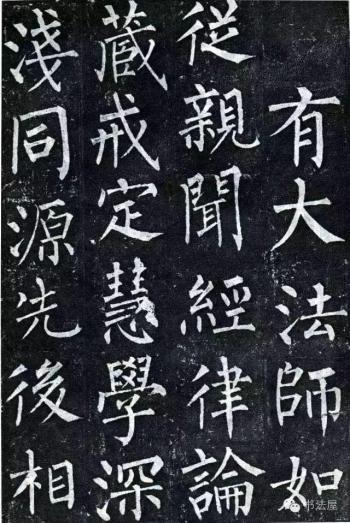 有大法師如
從親聞經律論
藏戒定慧學深
淺同源先後相
书法屋